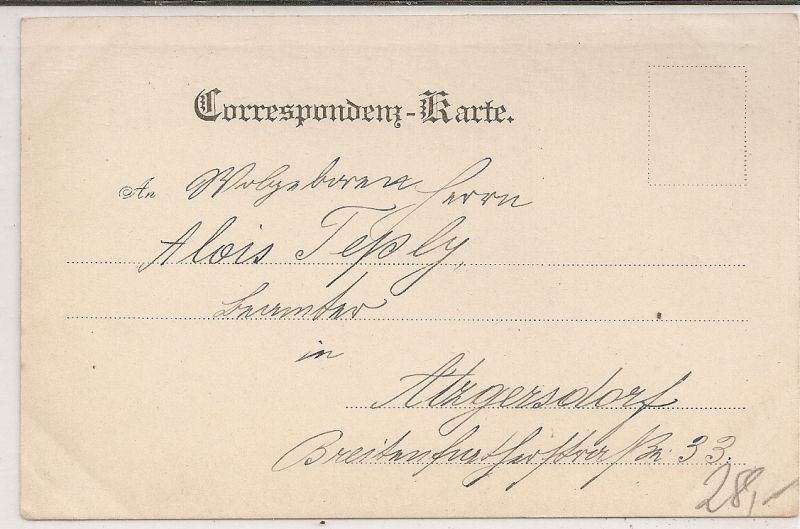 Correspondenz-Karte.
An Wolgeboren Herrn
Alois Teply,
Beamter
in
Atzgersdorf
Breitenfurtherstraße 33.
28,-